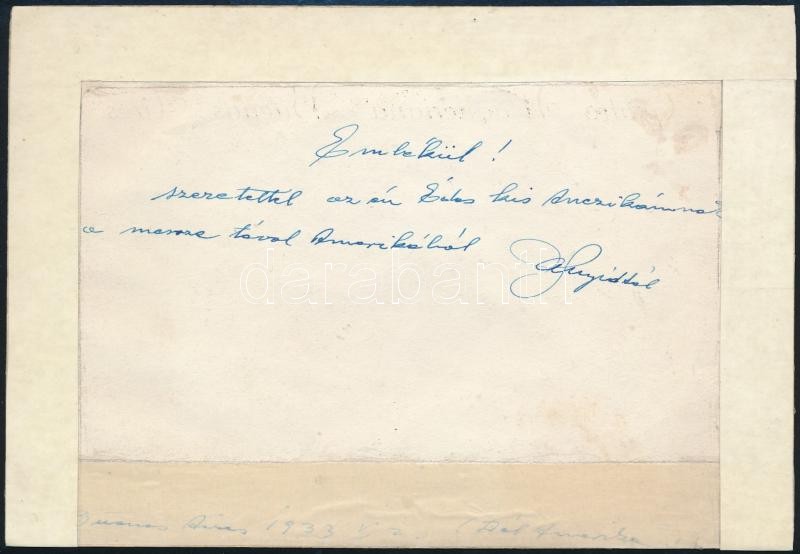 Emlékül!
szeretettel az én Édes kis Anczikámnak
a messze távol Amerikából
Anyidtól
Buenos Aires 1933 V/2. (Dél Amerika
darabanth